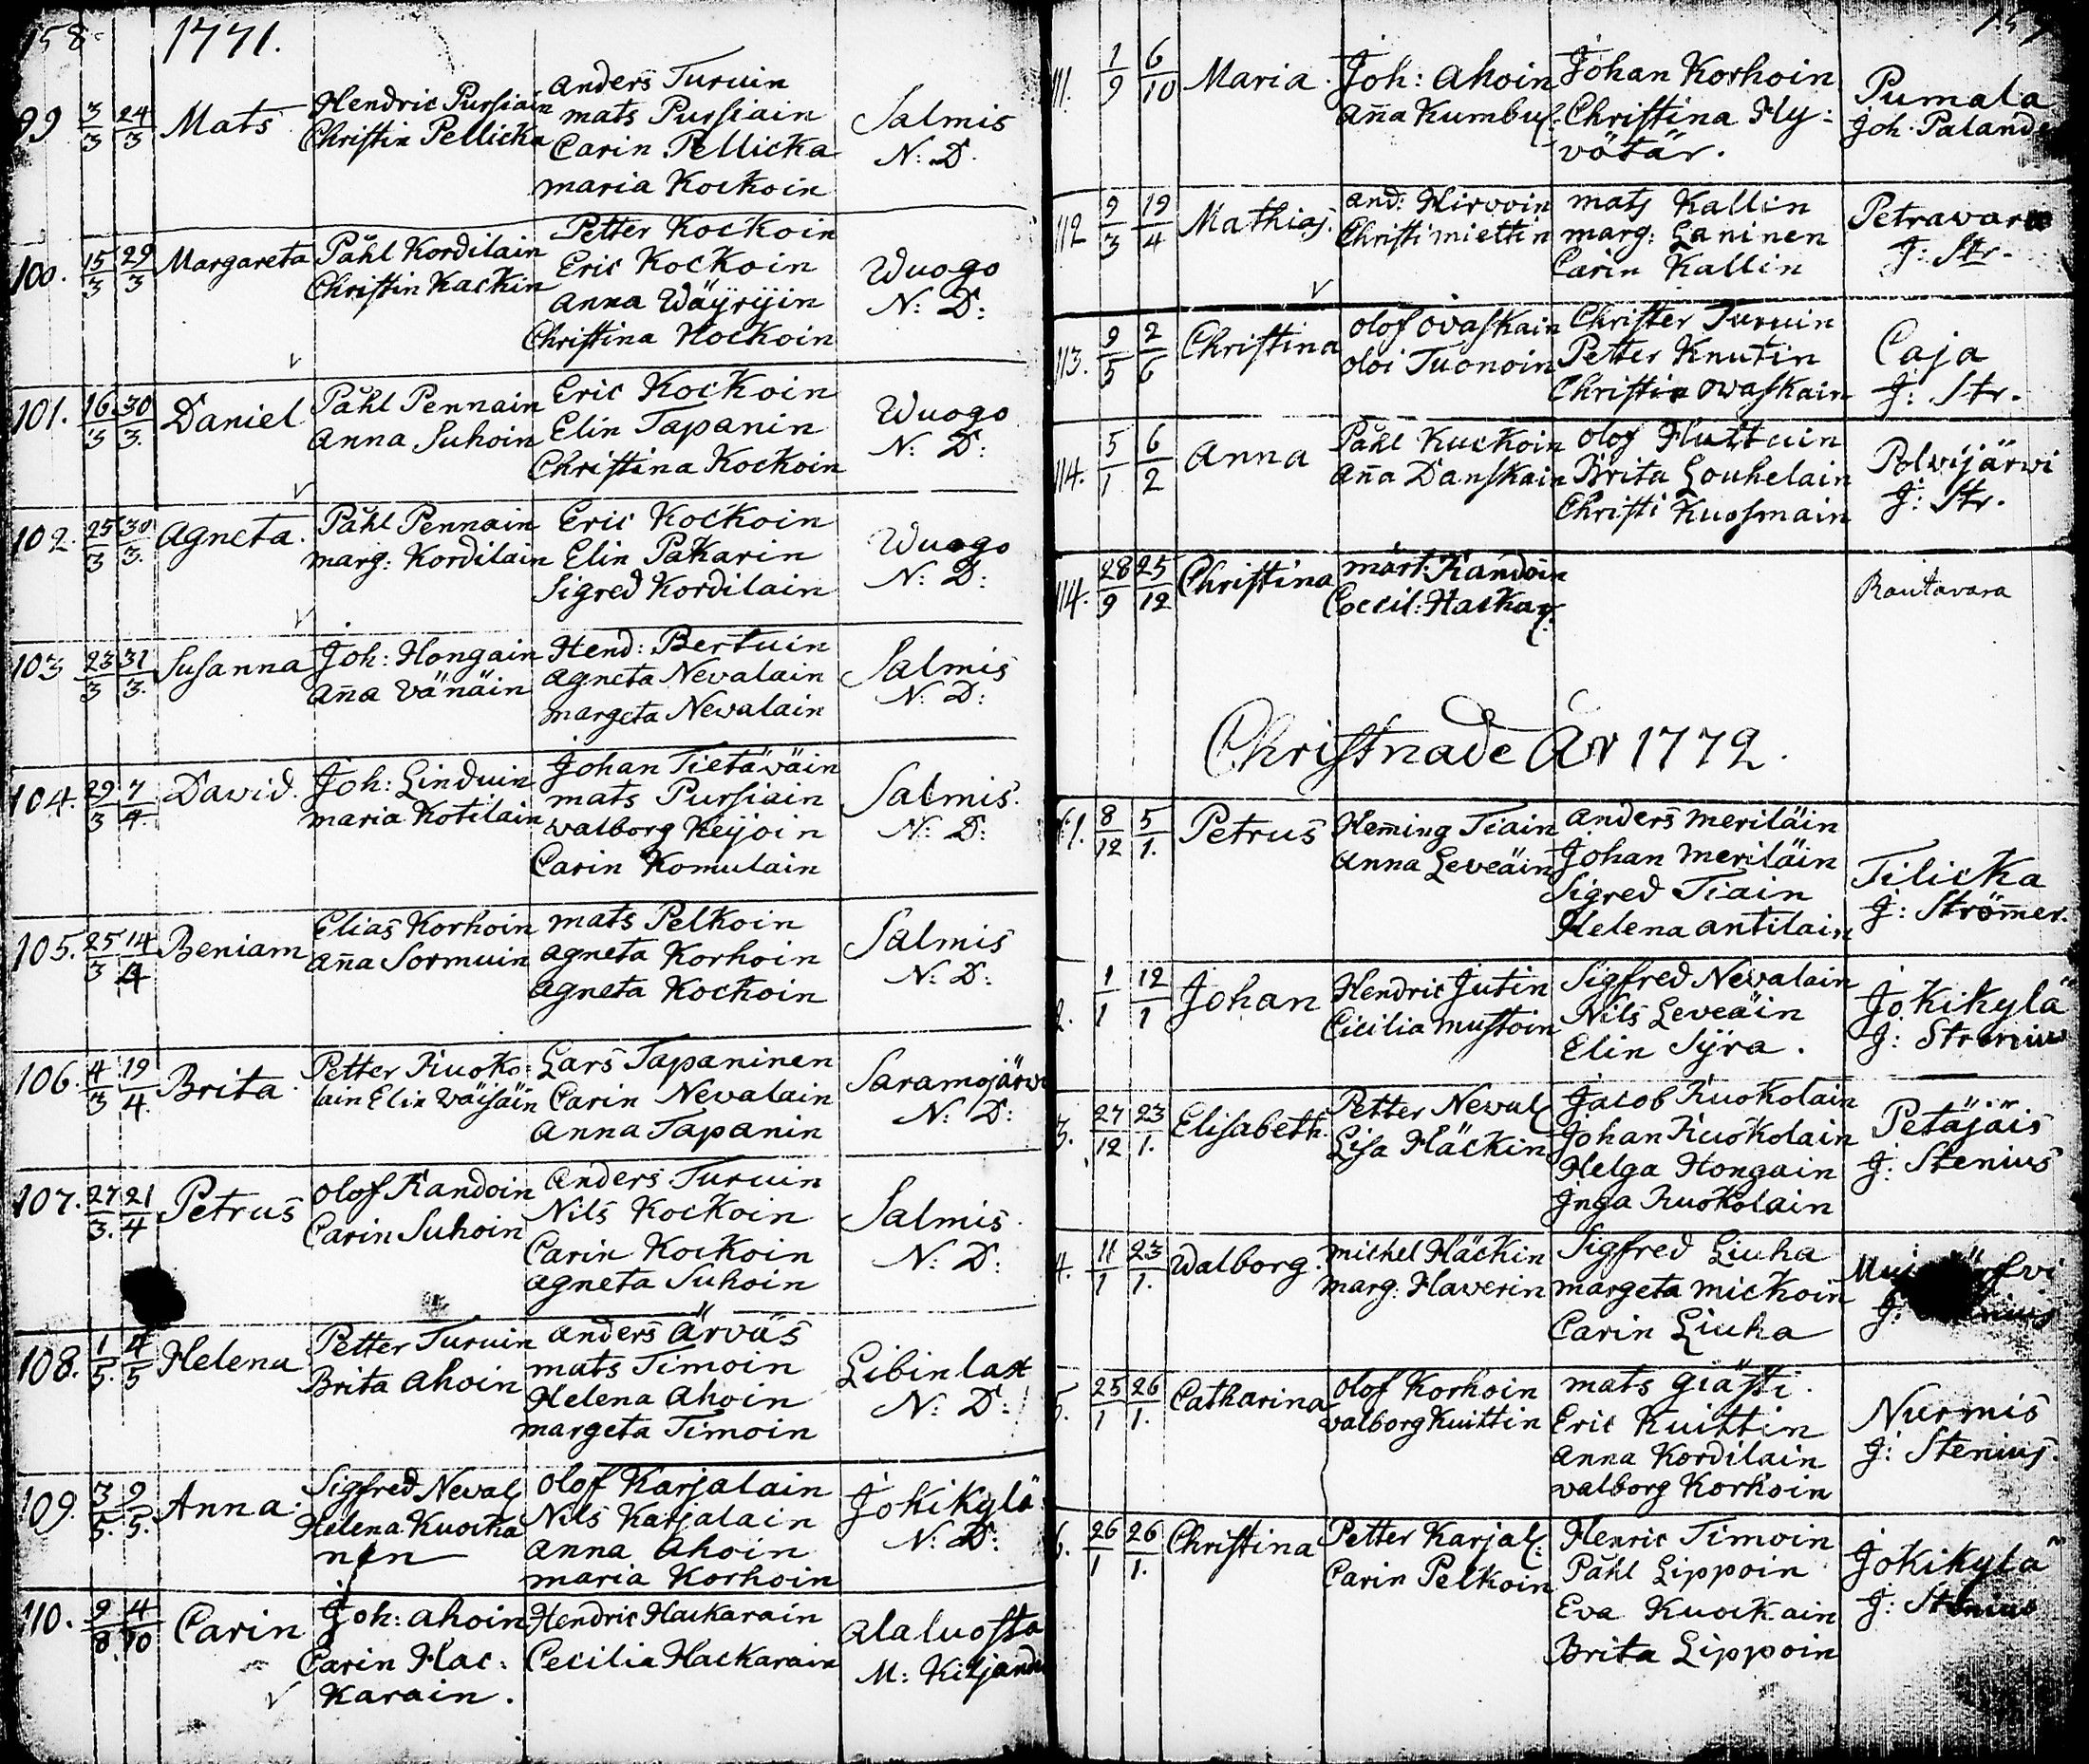 158
1771.
99 3/3 24/3 Mats
Hendric Pursiain
Christin Pellicka
anders Turuin
mats Pursiain
Carin Pellicka
maria Kockoin
Salmis
N: D.
100. 15/3 29/3 Margareta
Påhl Kordilain
Christin Kackin
Petter Kockoin
Eric Kockoin
anna Wäyryin
Christina Kockoin
Wuogo
N: D:
101. 16/3 30/3 Daniel
Påhl Pennain
anna Suhoin
Eric Kockoin
Elin Tapanin
Christina Kockoin
Wuogo
N: D:
102. 25/3 30/3. agneta.
Påhl Pennain
marg: Kordilain
Eric Kockoin
Elin Pakarin
Sigred Kordilain
Wuogo
N: D:
103 23/3 31/3. Susanna
Joh: Hongain
aña Vänäin
Hend: Bertuin
agneta Nevalain
margeta Nevalain
Salmis
N: D:
104. 29/3 7/4. Dawid.
Joh: Linduin
maria Kotilain
Johan Tietäväin
mats Pursiain
walborg Keijoin
Carin Komulain
Salmis.
N: D:
105. 25/3 14/4 Beniam
Elias Korhoin
aña Sormuin
mats Pelkoin
agneta Korhoin
agneta Kockoin
Salmis
N: D:
106. 4/3 19/4. Brita.
Petter Ruoko:
lain Elin Väisäin
Lars Tapaninen
Carin Nevalain
anna Tapanin
Saramojärwi
N: D:
107. 27/3. 21/4 Petrus
olof Randoin
Carin Suhoin
anders Turuin
Nils Kockoin
Carin Kockoin
agneta Suhoin
Salmis.
N: D:
108. 1/5. 4/5 Helena
Petter Turuin
Brita ahoin
anders ärväs
mats Timoin
Helena ahoin
margeta Timoin
Libinlax
N: D:
109. 3/5. 9/5. Anna.
Sigfred Neval
Helena Kuocka
nen
olof Karjalain
Nils Karjalain
anna ahoin
maria Korhoin
Jokikylä
N: D:
110. 9/8. 4/10 Carin
Joh: ahoin
Carin Hac:
karain.
Hendric Hackarain
Cecilia Hackarain
alaluosta
M: Kiljand
111. 1/9 6/10 Maria.
Joh: ahoin
aña Kumbul:
Johan Korhoin
Christina Hy:
vötär.
Pumala
Joh. Palande
112 9/3 19/4 Mathias.
and: Hirvoin
Christi miettin
mats Kallin
marg: Laninen
Carin Kallin
Petrawara
J: Str.
113. 9/5 2/6 Christina
olof ovaskain
oloi Tuonoin
Christer Turuin
Petter Knutin
Christin owaskain
Caja
J: Str.
114. 5/1 6/2 anna
Påhl Kuckoin
aña Danskain
olof Huttuin
Brita Louhelain
Christi Kuosmain
Polvijärwi
J: Str.
114. 28/9 25/12 Christina
mårt: Randoin
Coecil: Hackar:
Rautavara
Christnade År 1772.
1. 8/12 5/1. Petrus
Heming Tiain
anna Leveäin
anders meriläin
Johan meriläin
Sigred Tiain
Helena antilain
Tilicka
J: Strömer.
2. 1/1 12/1 Johan
Hendric Jutin
Cicilia mustoin
Sigfred Nevalain
Nils Leveäin
Elin Syra.
Jokikylä
J: Stenius
3. 27/12 23/1. Elisabeth.
Petter Neval
Lisa Häckin
Jacob Ruokolain
Johan Ruokolain
Helga Hongain
Inga Ruokolain
Petäjäis
J: Stenius
4. 11/1 23/1. Walborg.
michel Häckin
marg: Haverin
Sigfred Liuha
margeta mickoin
Carin Liuha
J:
5. 25/1 26/1. Catharina
olof Korhoin
valborg Kuittin
mats giästi.
Eric Kuittin
anna Kordilain
valborg Korhoin
Nurmis
J: Stenius.
6. 26/1 26/1. Christina
Petter Karjal:
Carin Pelkoin
Henric Timoin
Påhl Lippoin
Eva Kuockain
Brita Lippoin
Jokikylä
J: Stenius